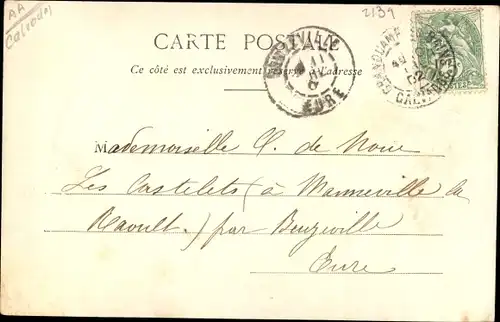 AA
Calvados
2139
CARTE POSTALE
Ce côté est exclusivement réservé à l'adresse
BEUZEVILLE
EURE
GRANDCAMP
CALVADOS
Mademoiselle C. de Noüe
Les Castelets (à Manneville la
Raoult.) par Beuzeville
Eure